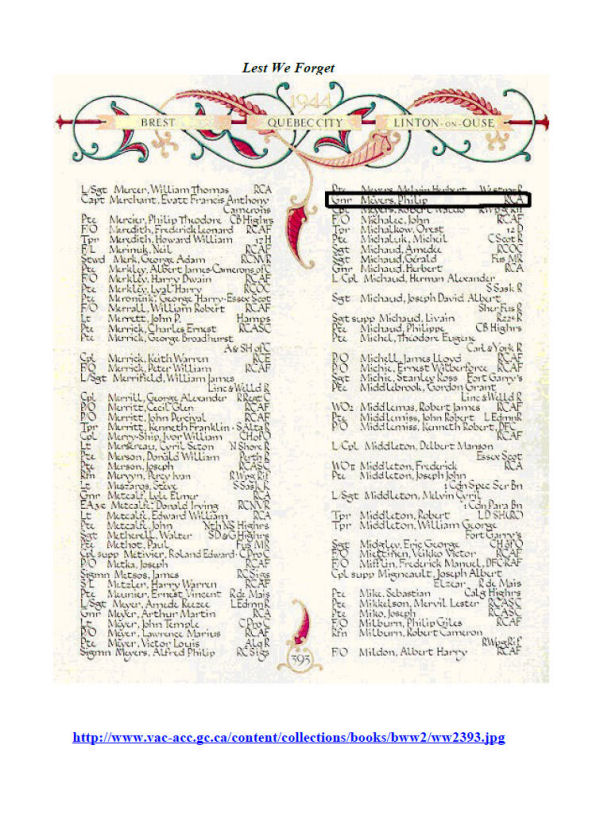 Lest We Forget
1944
BREST QUEBEC CITY LINTON-ON-OUSE
L/Sgt Mercer, William Thomas RCA
Capt Merchant, Evatt Francis Anthony
Camerons
Pte Mercier, Philip Theodore CB Highrs
F/O Meredith, Frederick Leonard RCAF
Tpr Meredith, Howard William 17 H
F/L Merinuk, Neil RCAF
Stwd Merk, George Adam RCNVR
Pte Merkley, Albert James-Camerons of C
F/O Merkley, Harry Dwain RCAF
Pte Merkley, Lyal Harry RCOC
Pte Meroniuk, George Harry-Essex Scot
F/O Merrall, William Robert RCAF
Lt Merrett, John P. Hamps
Pte Merrick, Charles Ernest RCASC
Pte Merrick, George Broadhurst
A & SH of C
Cpl Merrick, Keith Warren RCE
F/O Merrick, Peter William RCAF
L/Sgt Merrifield, William James
Linc & Welld R
Cpl Merrill, George Alexander R Regt C
P/O Merritt, Cecil Olen RCAF
F/O Merritt, John Percival RCAF
Tpr Merritt, Kenneth Franklin - S Alta R
Cpl Merry-Ship, Ivor William CH of O
Lt Mersereau, Cyril Seton N Shore R
Pte Merson, Donald William Perth R
Pte Merson, Joseph RCASC
Rfn Mervyn, Percy Ivan R Wpg Rif
Lt Meszaros, Steve S Sask R
Gnr Metcalf, Lyle Elmer RCA
EA3c Metcalf, Donald Irving RCNVR
Lt Metcalf, Edward William RCA
Pte Metcalf, John Nth NS Highrs
Sgt Metherell, Walter SD & G Highrs
Pte Methot, Paul Fus MR
Cpl supp Metivier, Roland Edward C Pro C
P/O Metka, Joseph RCAF
Sigmn Metsos, James RC Sigs
S/L Metzler, Harry Warren RCAF
Pte Meunier, Ernest Vincent R de Mais
L/Sgt Meyer, Amede Keezee L Edmn R
Gnr Meyer, Arthur Martin RCA
Lt Meyer, John Temple C Pro C
P/O Meyer, Lawrence Marius RCAF
Pte Meyer, Victor Louis Alq R
Sigmn Meyers, Alfred Philip RC Sigs
Pte Meyers, Melvin Herbert Westmr R
Gnr Meyers, Philip RCA
Cpl Meyers, Robert Waldo R Wpg Rif
F/O Michalec, John RCAF
Tpr Michalkow, Orest 12 D
Pte Michaluk, Micheil C Scot R
Sgt Michaud, Amedee RCOC
Sgt Michaud, Gérald Fus MR
Gnr Michaud, Herbert RCA
L/Cpl Michaud, Herman Alexander
S Sask R
Sgt Michaud, Joseph David Albert
Sher Fus R
Sgt supp Michaud, Livain R 22e R
Pte Michaud, Philippe CB Highrs
Pte Michel, Theodore Eugene
Carl & York R
P/O Michell, James Lloyd RCAF
P/O Michie, Ernest Wilberforce RCAF
Sgt Michie, Stanley Ross Fort Garry's
Pte Middlebrook, Gordon Grant
Linc & Welld R
WO2 Middlemas, Robert James RCAF
Pte Middlemiss, John Robert L Edmn R
P/O Middlemiss, Kenneth Robert, DFC
RCAF
L/Cpl Middleton, Delbert Manson
Essex Scot
WO II Middleton, Frederick RCA
Pte Middleton, Joseph John
1 Cdn Spec Ser Bn
L/Sgt Middleton, Melvin Cyril
1 Cdn Para Bn
Tpr Middleton, Robert LD SH (RC)
Tpr Middleton, William George
Fort Garry's
Sgt Midgley, Eric George CH of O
F/O Miettinen, Veikko Victor RCAF
F/O Mifflin, Frederick Manuel, DFC RAF
Cpl supp Migneault, Joseph Albert
Elzear R de Mais
Pte Mike, Sebastian Calg Highrs
Pte Mikkelson, Mervil Lester RCASC
Pte Miko, Joseph RCASC
F/O Milburn, Philip Giles RCAF
Rfn Milburn, Robert Cameron
R Wpg Rif
F/O Mildon, Albert Harry RCAF
393
http://www.vac-acc.gc.ca/content/collections/books/bww2/ww2393.jpg